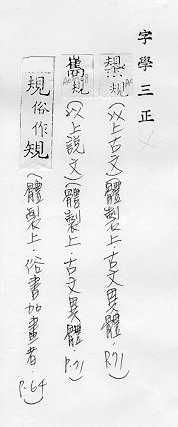 字學三正
規(以上古文)(體製上·古文異體·P.71)
(以上說文)(體製上·古文異體·P.71)
規俗作䂓(體製上·俗書加畫者·P.64)